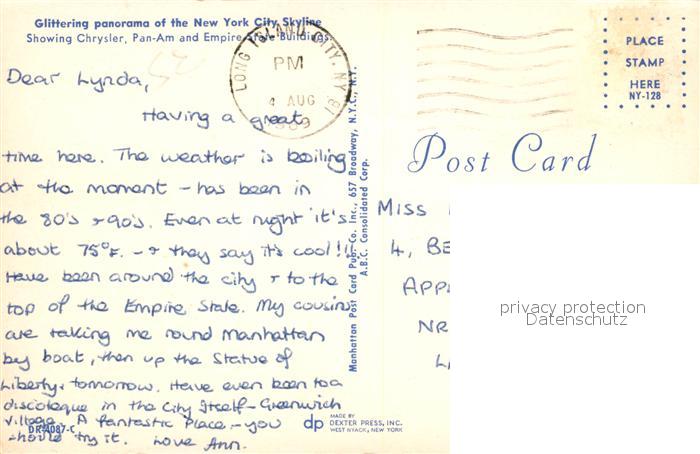 Glittering panorama of the New York City Skyline
Showing Chrysler, Pan-Am and Empire State Buildings.
LONG ISLAND CITY, NY
PM
4 AUG
1969
PLACE
STAMP
HERE
NY-128
Post Card
Dear Lynda,
Having a great
time here. The weather is boiling
at the moment - has been in
the 80's + 90's. Even at night it's
about 75°F. - + they say it's cool!!
Have been around the city + to the
top of the Empire State. My cousins
are taking me round Manhattan
by boat, then up the Statue of
Liberty, tomorrow. Have even been to a
discoteque in the City Itself - Greenwich
Village. A fantastic Place - you
should try it. Love Ann.
Manhattan Post Card Pub. Co. Inc., 657 Broadway, N.Y.C., N.Y.
A.B.C. Consolidated Corp.
MISS
4, BE
APP
NR
L
privacy protection
Datenschutz
DR-4087-C
dp
MADE BY
DEXTER PRESS, INC.
WEST NYACK, NEW YORK